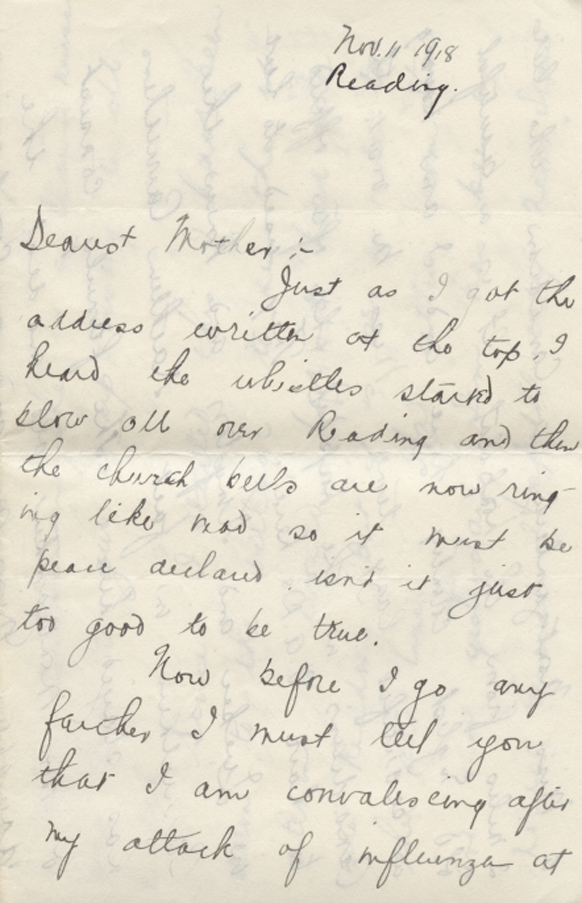 Nov. 11 1918
Reading.
Dearest Mother :-
Just as I got the
address written at the top, I
heard the whistles started to
blow all over Reading and then
the church bells are now ring-
ing like mad so it must be
peace declared. isn't it just
too good to be true.
Now before I go any
farther I must tell you
that I am convalescing after
my attack of influenza at